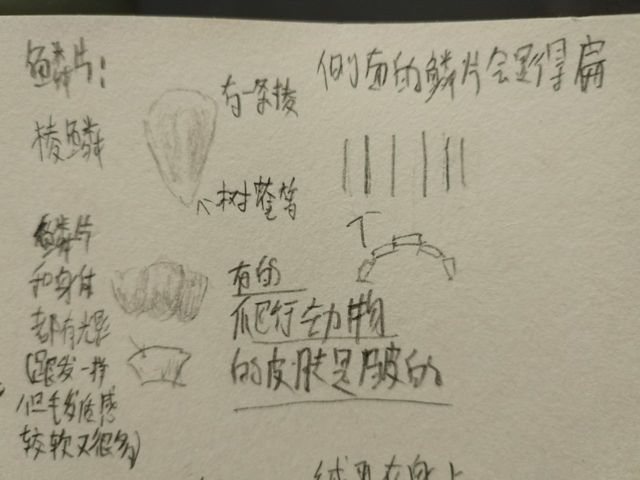 鳞片:
侧面的鳞片会显得扁
有一条棱
棱鳞
鳞片
和身体
都有光影
但毛发质感
较软又很多)
有的
爬行动物
的皮肤是皱的